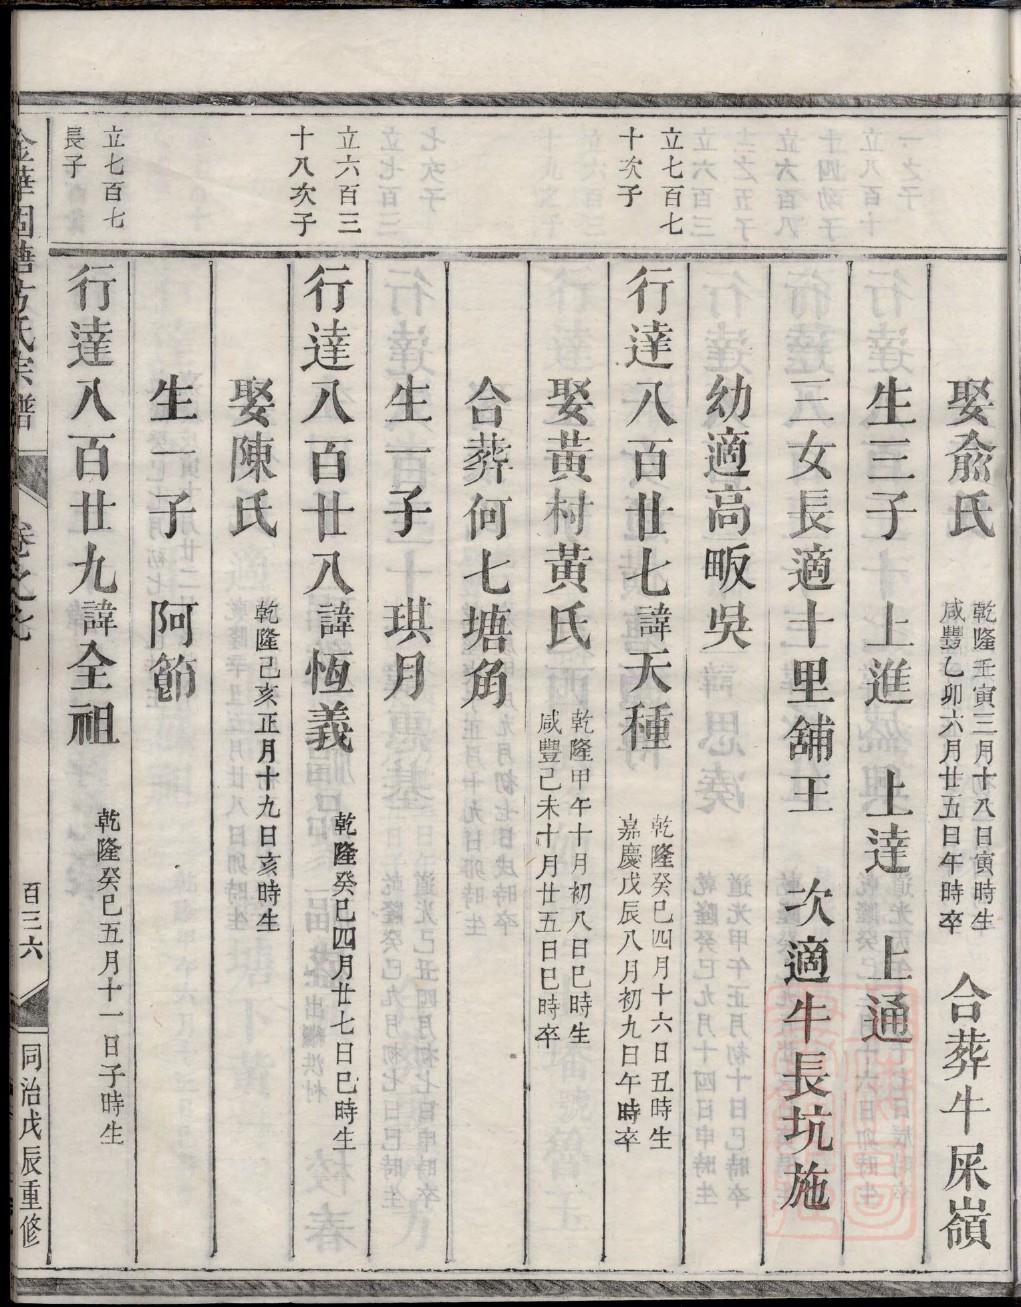 娶俞氏 乾隆壬寅三月十八日寅時生 咸豐乙卯六月廿五日午時卒 合葬牛屎嶺
生三子 上進 上達 上通
三女長適十里舖王 次適牛長坑施
幼適高畈吳
立七百七
十次子
行達八百廿七諱天種 乾隆癸巳四月十六日丑時生 嘉慶戊辰八月初九日午時卒
娶黃村黃氏 乾隆甲午十月初八日巳時生 咸豐己未十月廿五日巳時卒
合葬何七塘角
生一子 琪月
立六百三
十八次子
行達八百廿八諱恆義 乾隆癸巳四月廿七日巳時生
娶陳氏 乾隆己亥正月十九日亥時生
生一子 阿節
立七百七
長子
行達八百廿九諱全祖 乾隆癸巳五月十一日子時生
金華固塘方氏宗譜 卷之七 百三六 同治戊辰重修